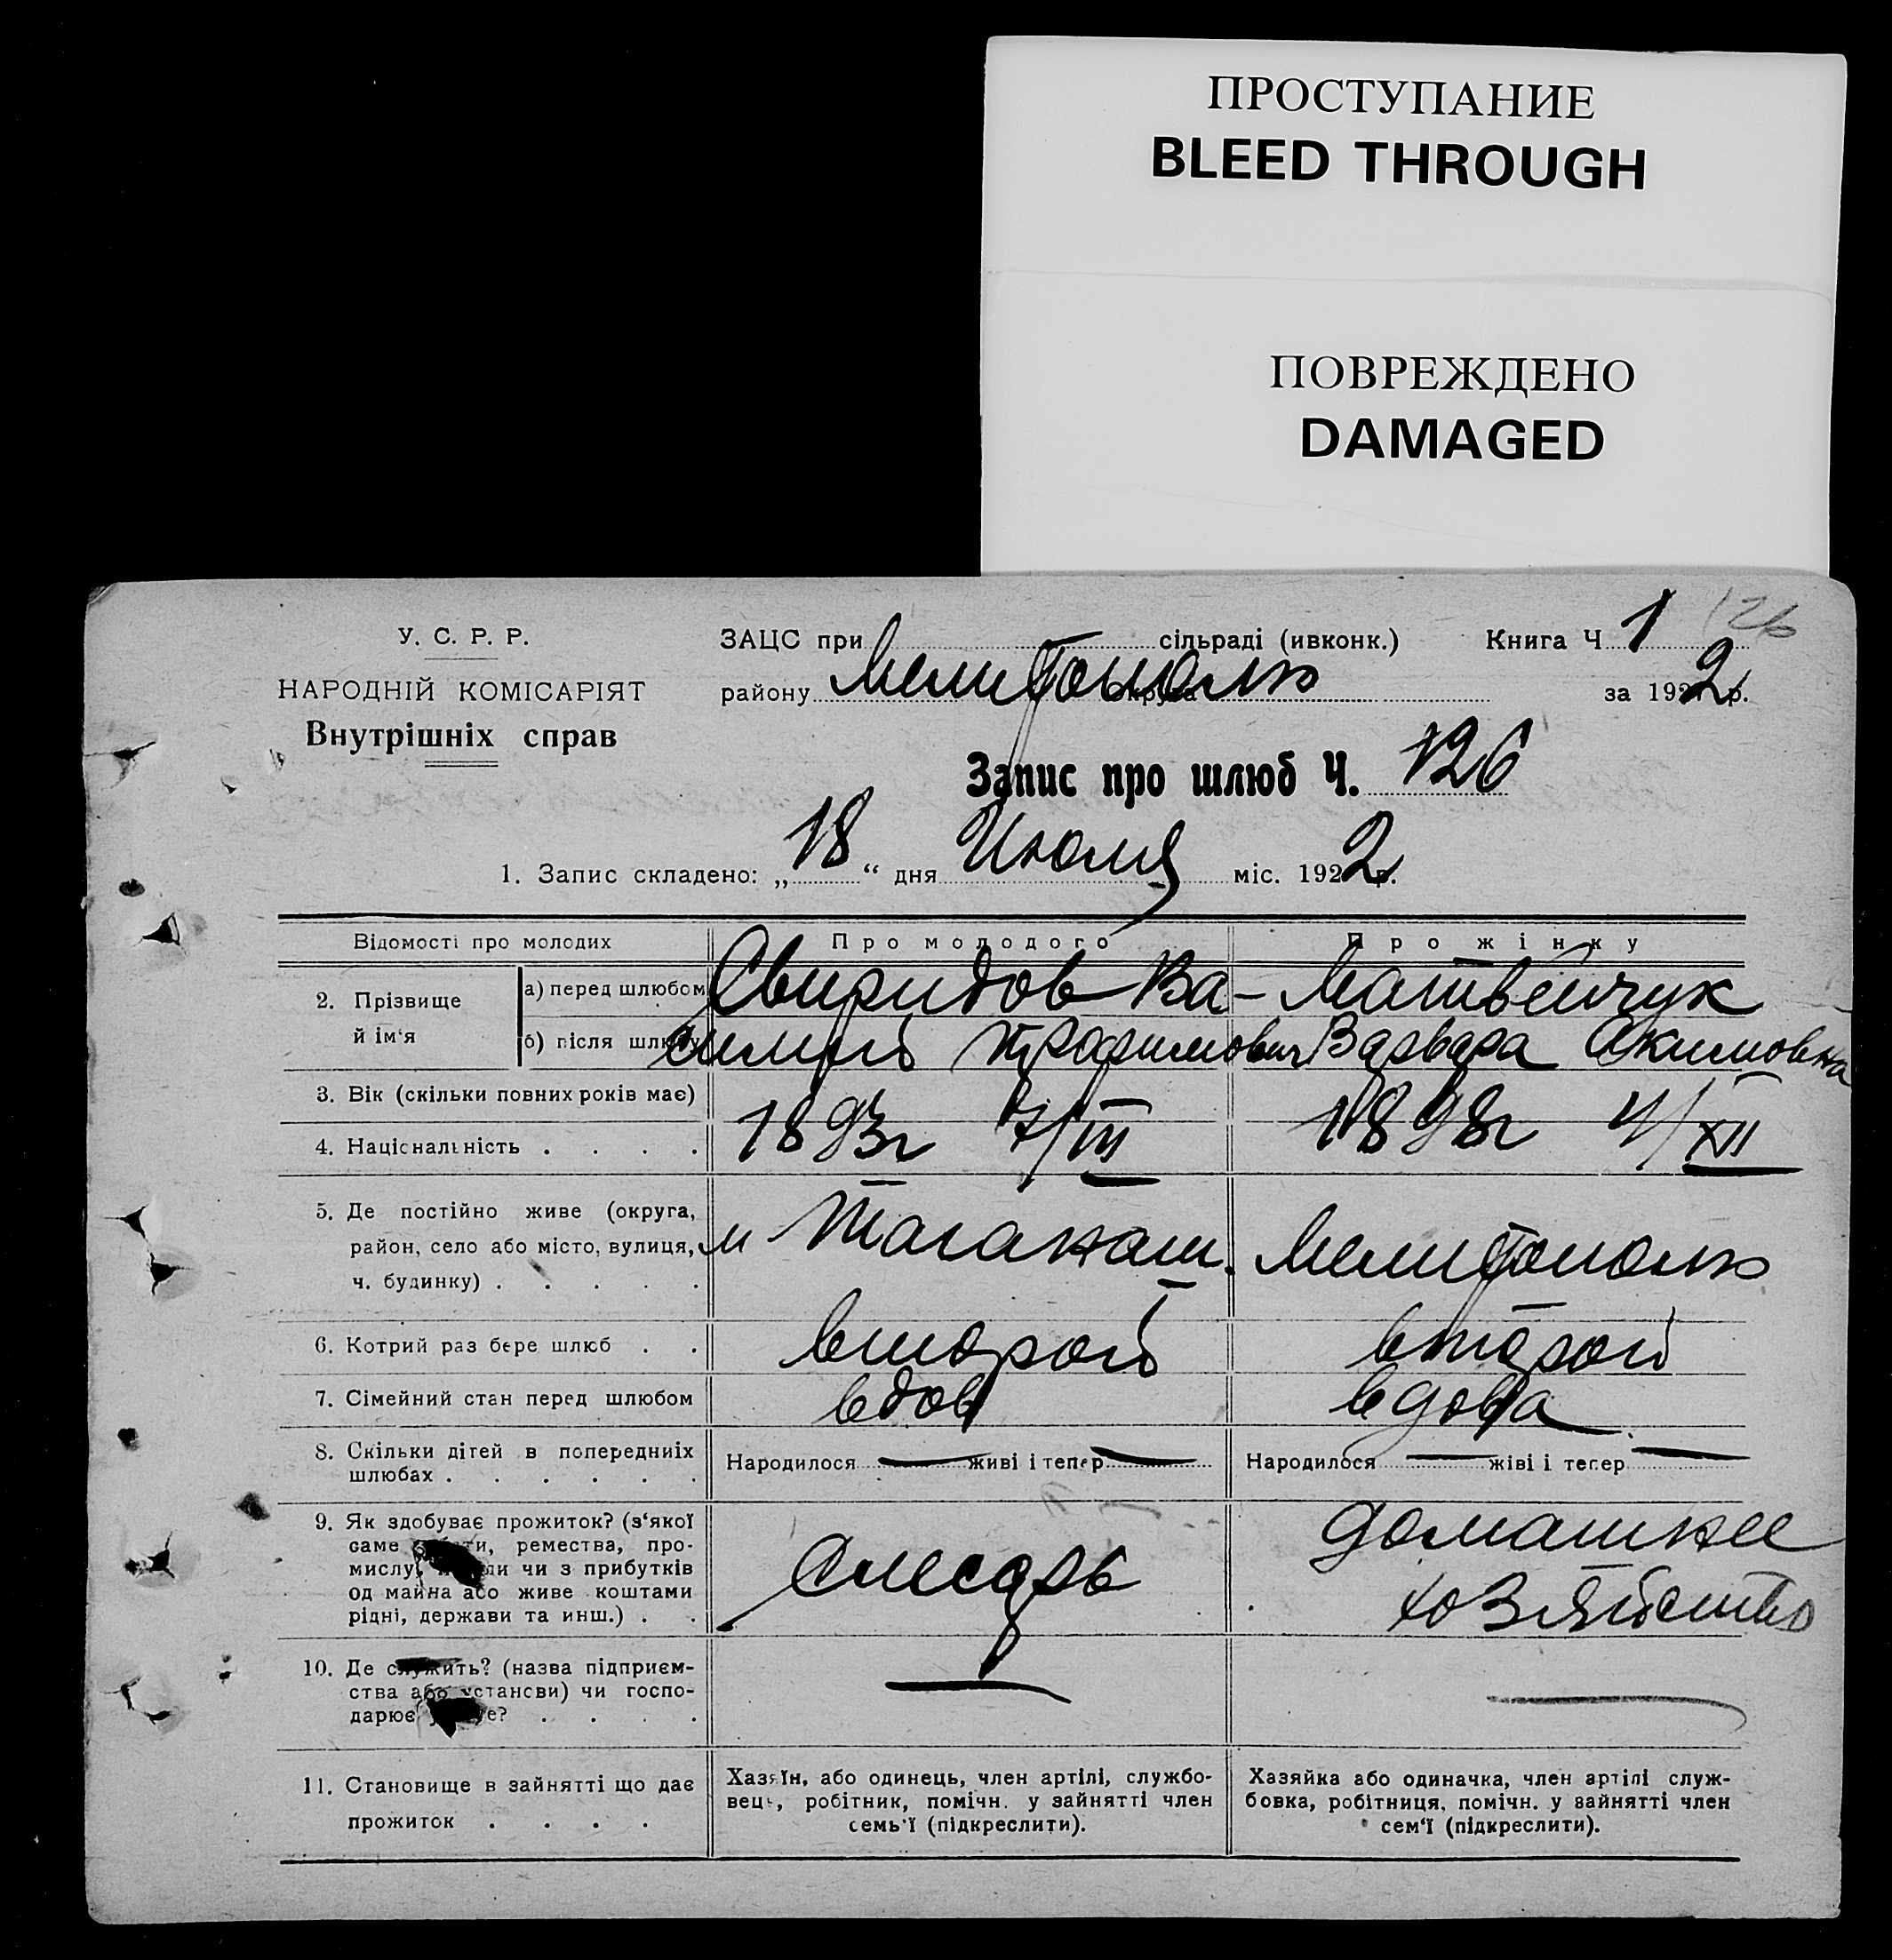 ПРОСТУПАНИЕ
BLEED THROUGH
ПОВРЕЖДЕНО
DAMAGED
126
У. С. Р. Р.
НАРОДНІЙ КОМІСАРІЯТ
Внутрішніх справ
ЗАЦС при сільраді (ивконк.) Книга Ч. 1
району Мелитополь за 1922 р.
Запис про шлюб Ч. 126
1. Запис складено: „18“ дня Июля міс. 1922 р.
Відомості про молодих Про молодого Про жінку
2. Прізвище й ім‘я
а) перед шлюбом Свиридов Ва- Матвейчук
б) після шлюбу силий Трофимович Варвара Акимовна
3. Вік (скільки повних років має)
4. Націснальність . . . .
1893г 7/III 1898г 4/XII
5. Де постійно живе (округа,
район, село або місто, вулиця,
ч. будинку) . . . . .
м Таганаш. Мелитополь
6. Котрий раз бере шлюб . . второй второй
7. Сімейний стан перед шлюбом вдов вдова
8. Скільки дітей в попередниіх
шлюбах . . . . . .
Народилося — живі і тепер — Народилося — жіві і тепер —
9. Як здобуває прожиток? (з‘якої
саме ремества, про-
мислу, чи з прибутків
од майна або живе коштами
рідні, держави та инш.) . .
Слесарь
домашнее
хозяйство
10. Де служить? (назва підприєм-
ства або установи) чи госпо-
дарює . . . .
— —
11. Становище в зайнятті що дає
прожиток . . . .
Хазяїн, або одинець, член артілі, службо-
вець, робітник, помічн. у зайнятті член
семь‘ї (підкреслити).
Хазяйка або одиначка, член артілі служ-
бовка, робітниця, помічн. у зайнятті член
сем‘ї (підкреслити).